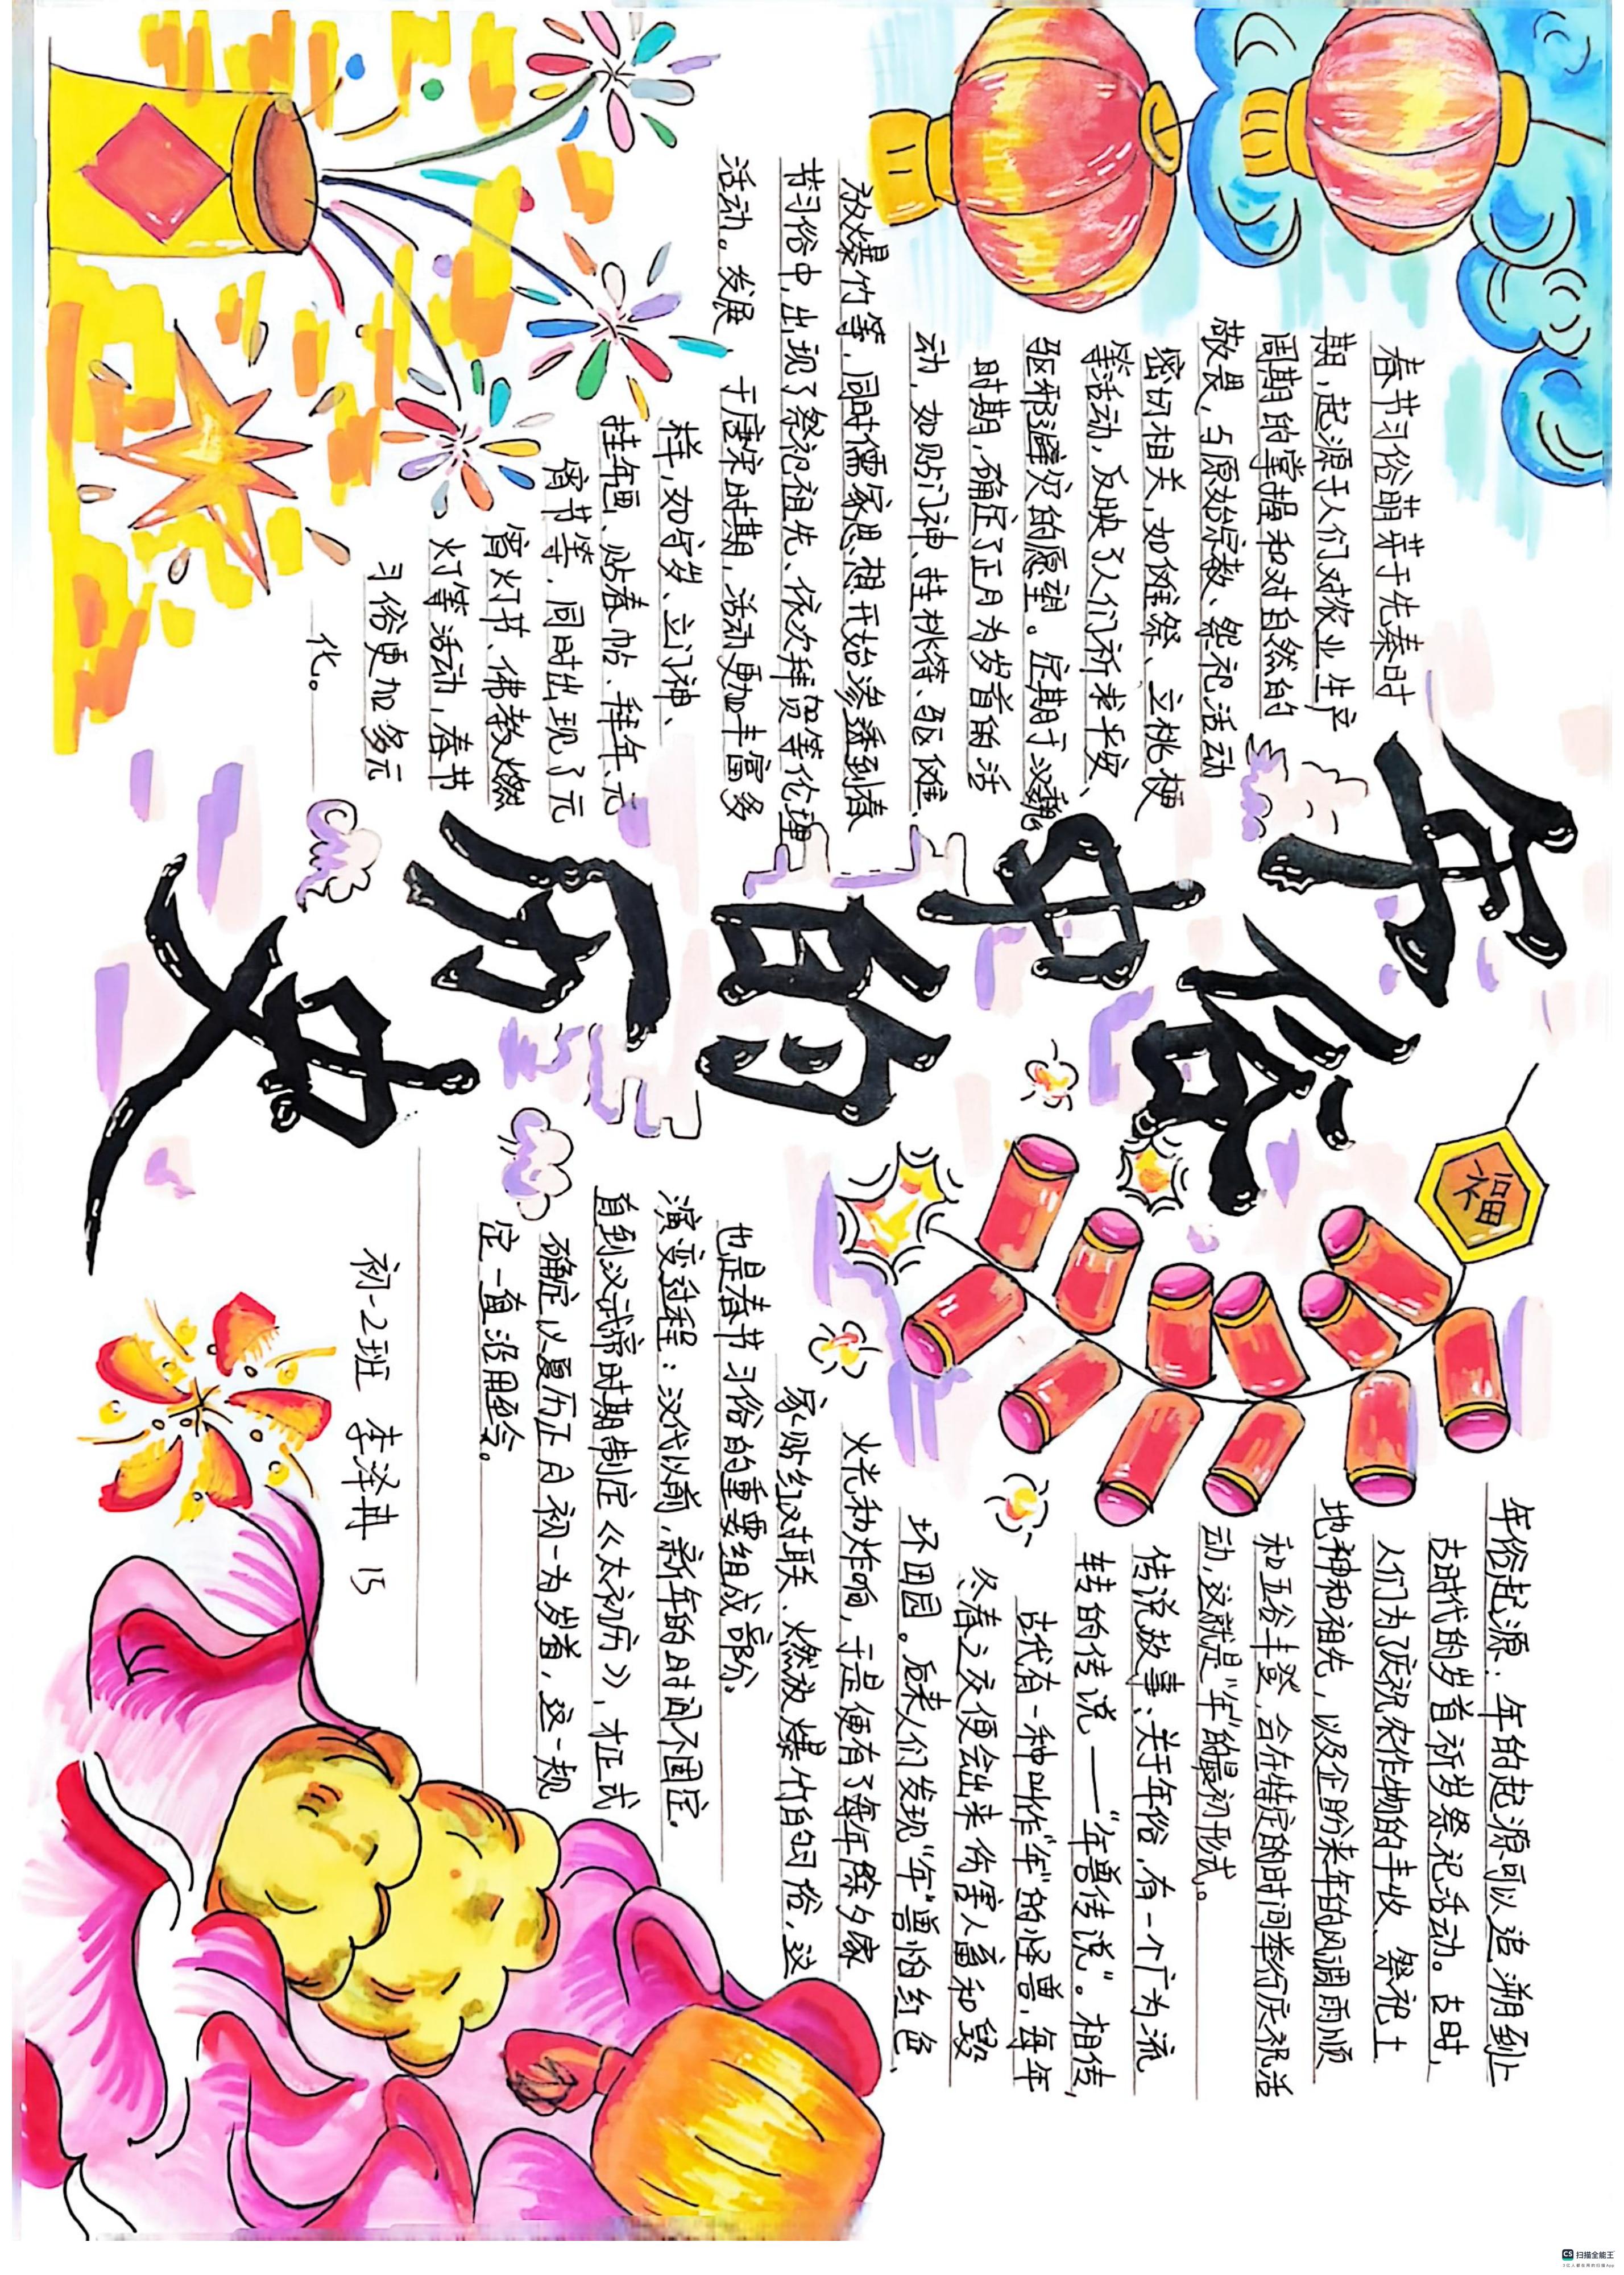 年俗中的历史
春节习俗萌芽于先秦时
期,起源于人们对农业生产
周期的掌握和对自然的
敬畏,与原始宗教、祭祀活动
密切相关,如傩祭、立桃梗
等活动,反映了人们祈求平安、
驱邪避灾的愿望。定期于汉魏
时期,确定了正月为岁首的活
动,如贴门神、挂桃符、驱傩、
放爆竹等,同时儒家思想开始渗透到春
节习俗中,出现了祭祀祖先、依次拜贺等伦理
活动。发展于唐宋时期,活动更加丰富多
样,如守岁、立门神、
挂年画、贴春帖、拜年、元
宵节等,同时出现了元
宵灯节、佛教燃
灯等活动,春节
习俗更加多元
化。
福
年俗起源:年的起源可以追溯到上
古时代的岁首祈岁祭祀活动。古时,
人们为了庆祝农作物的丰收、祭祀土
地神和祖先,以及企盼来年的风调雨顺
和五谷丰登,会在特定的时间举行庆祝活
动,这就是“年”的最初形式。
传说故事:关于年俗,有一个广为流
转的传说——“年兽传说”。相传,
古代有一种叫作“年”的怪兽,每年
冬春之交便会出来伤害人畜和毁
坏田园。后来人们发现“年”兽怕红色、
火光和炸响,于是便有了每年除夕家
家贴红对联、燃放爆竹的习俗,这
也是春节习俗的重要组成部份。
演变过程:汉代以前,新年的时间不固定。
直到汉武帝时期制定《太初历》,才正式
确定以夏历正月初一为岁首,这一规
定一直沿用至今。
初一2班 李泽冉 15
CS 扫描全能王
3亿人都在用的扫描App